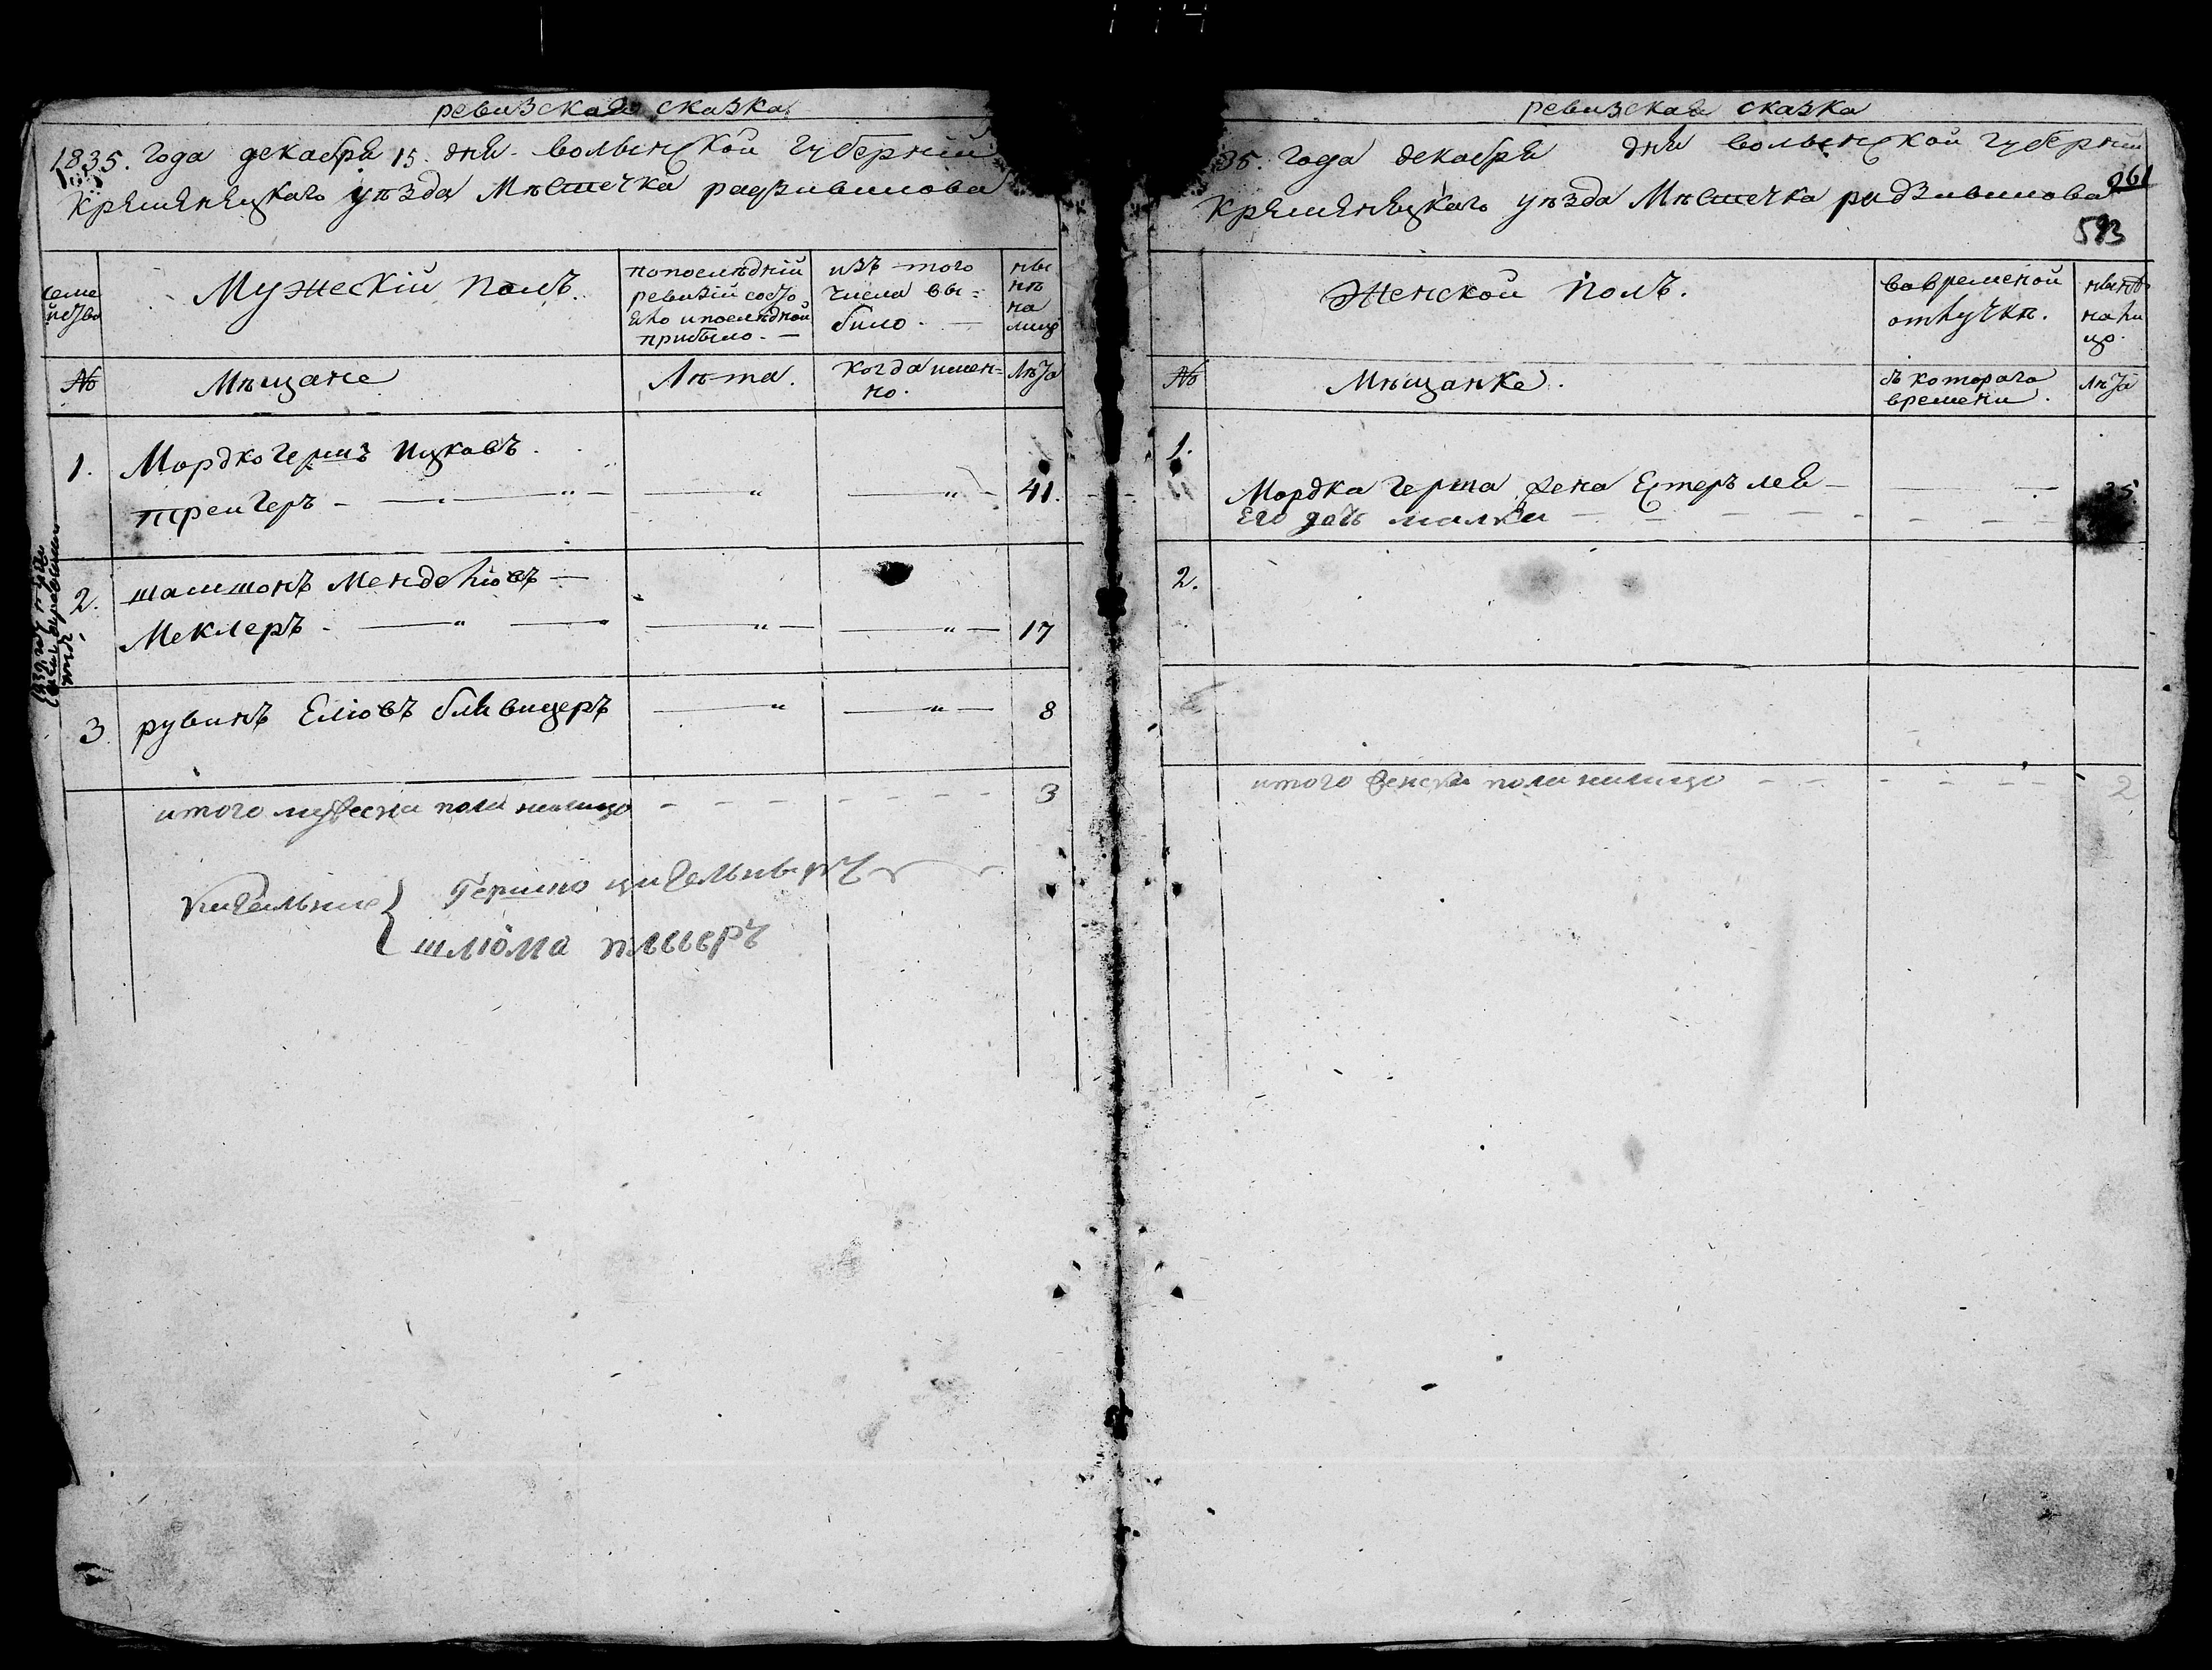 ревизская сказка
1835. года декабря 15. дня. волынской губерній
Кременецкаго уѣзда Мѣстечка радзивилова
семейство
Мужескій полъ.
попослѣдній ревизій состояло и послѣдной прибыло. —
изъ того числа вы=было. —
нынѣ на лицо
№
Мѣщане
Лѣта.
когда имен=но.
лѣта
1. Мордко гершъ Ицковъ.
трейгеръ — 41.
2. шамшонъ Менделіовъ —
Меклеръ — 17
3 рувинъ Еліовъ бливицеръ 8
итого мужеска пола налицо 3
Гершко
шлюома
ревизская сказка
35. года декабря дня волынской губерній
Кременецкаго уѣзда Мѣстечка радзивилова
961
593
Женской полъ.
вовременой отлучкѣ.
нынѣ на лицо.
№
Мѣщанке.
съ котораго времени.
лѣта
1.
Мордка герша жена Естеръ лея — 35
Его дочь малка
2.
итого женска пола налицо 2